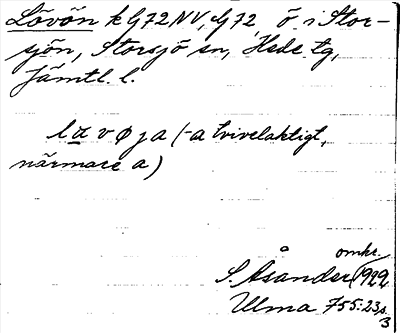 Lövön k G72NV, G72, ö i Stor-
sjön, Storsjö sn, Hede tg,
Jämtl. l.
lavøja (-a tvivelaktigt,
närmare a)
omkr.
S. Åsander 1922
Ulma 755:23, s.
3